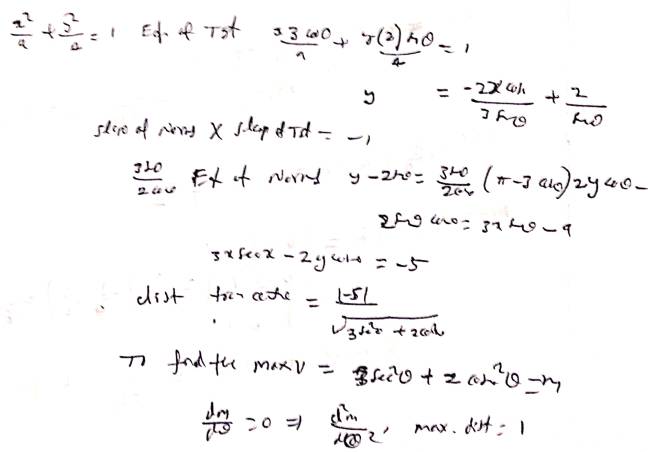 x²/9 + y²/4 = 1 Eq. of Tgt x 3 cosθ/9 + y(2) sinθ/4 = 1
y = -2x cosθ/3 sinθ + 2/sinθ
slope of Norml X slope of Tgt = -1
3sinθ/2cosθ Eq of Norml y - 2sinθ = 3sinθ/2cosθ (x - 3 cosθ) 2y cosθ -
2sinθ cosθ = 3x sinθ - 9
3x sec x - 2y cosecθ = -5
dist from centre = |-5|/√3sec²θ + 2cosec²θ
To find the max V = 3sec²θ + 2 cosec²θ = m
dm/dθ = 0 ⇒ d²m/dθ², max. dist = 1